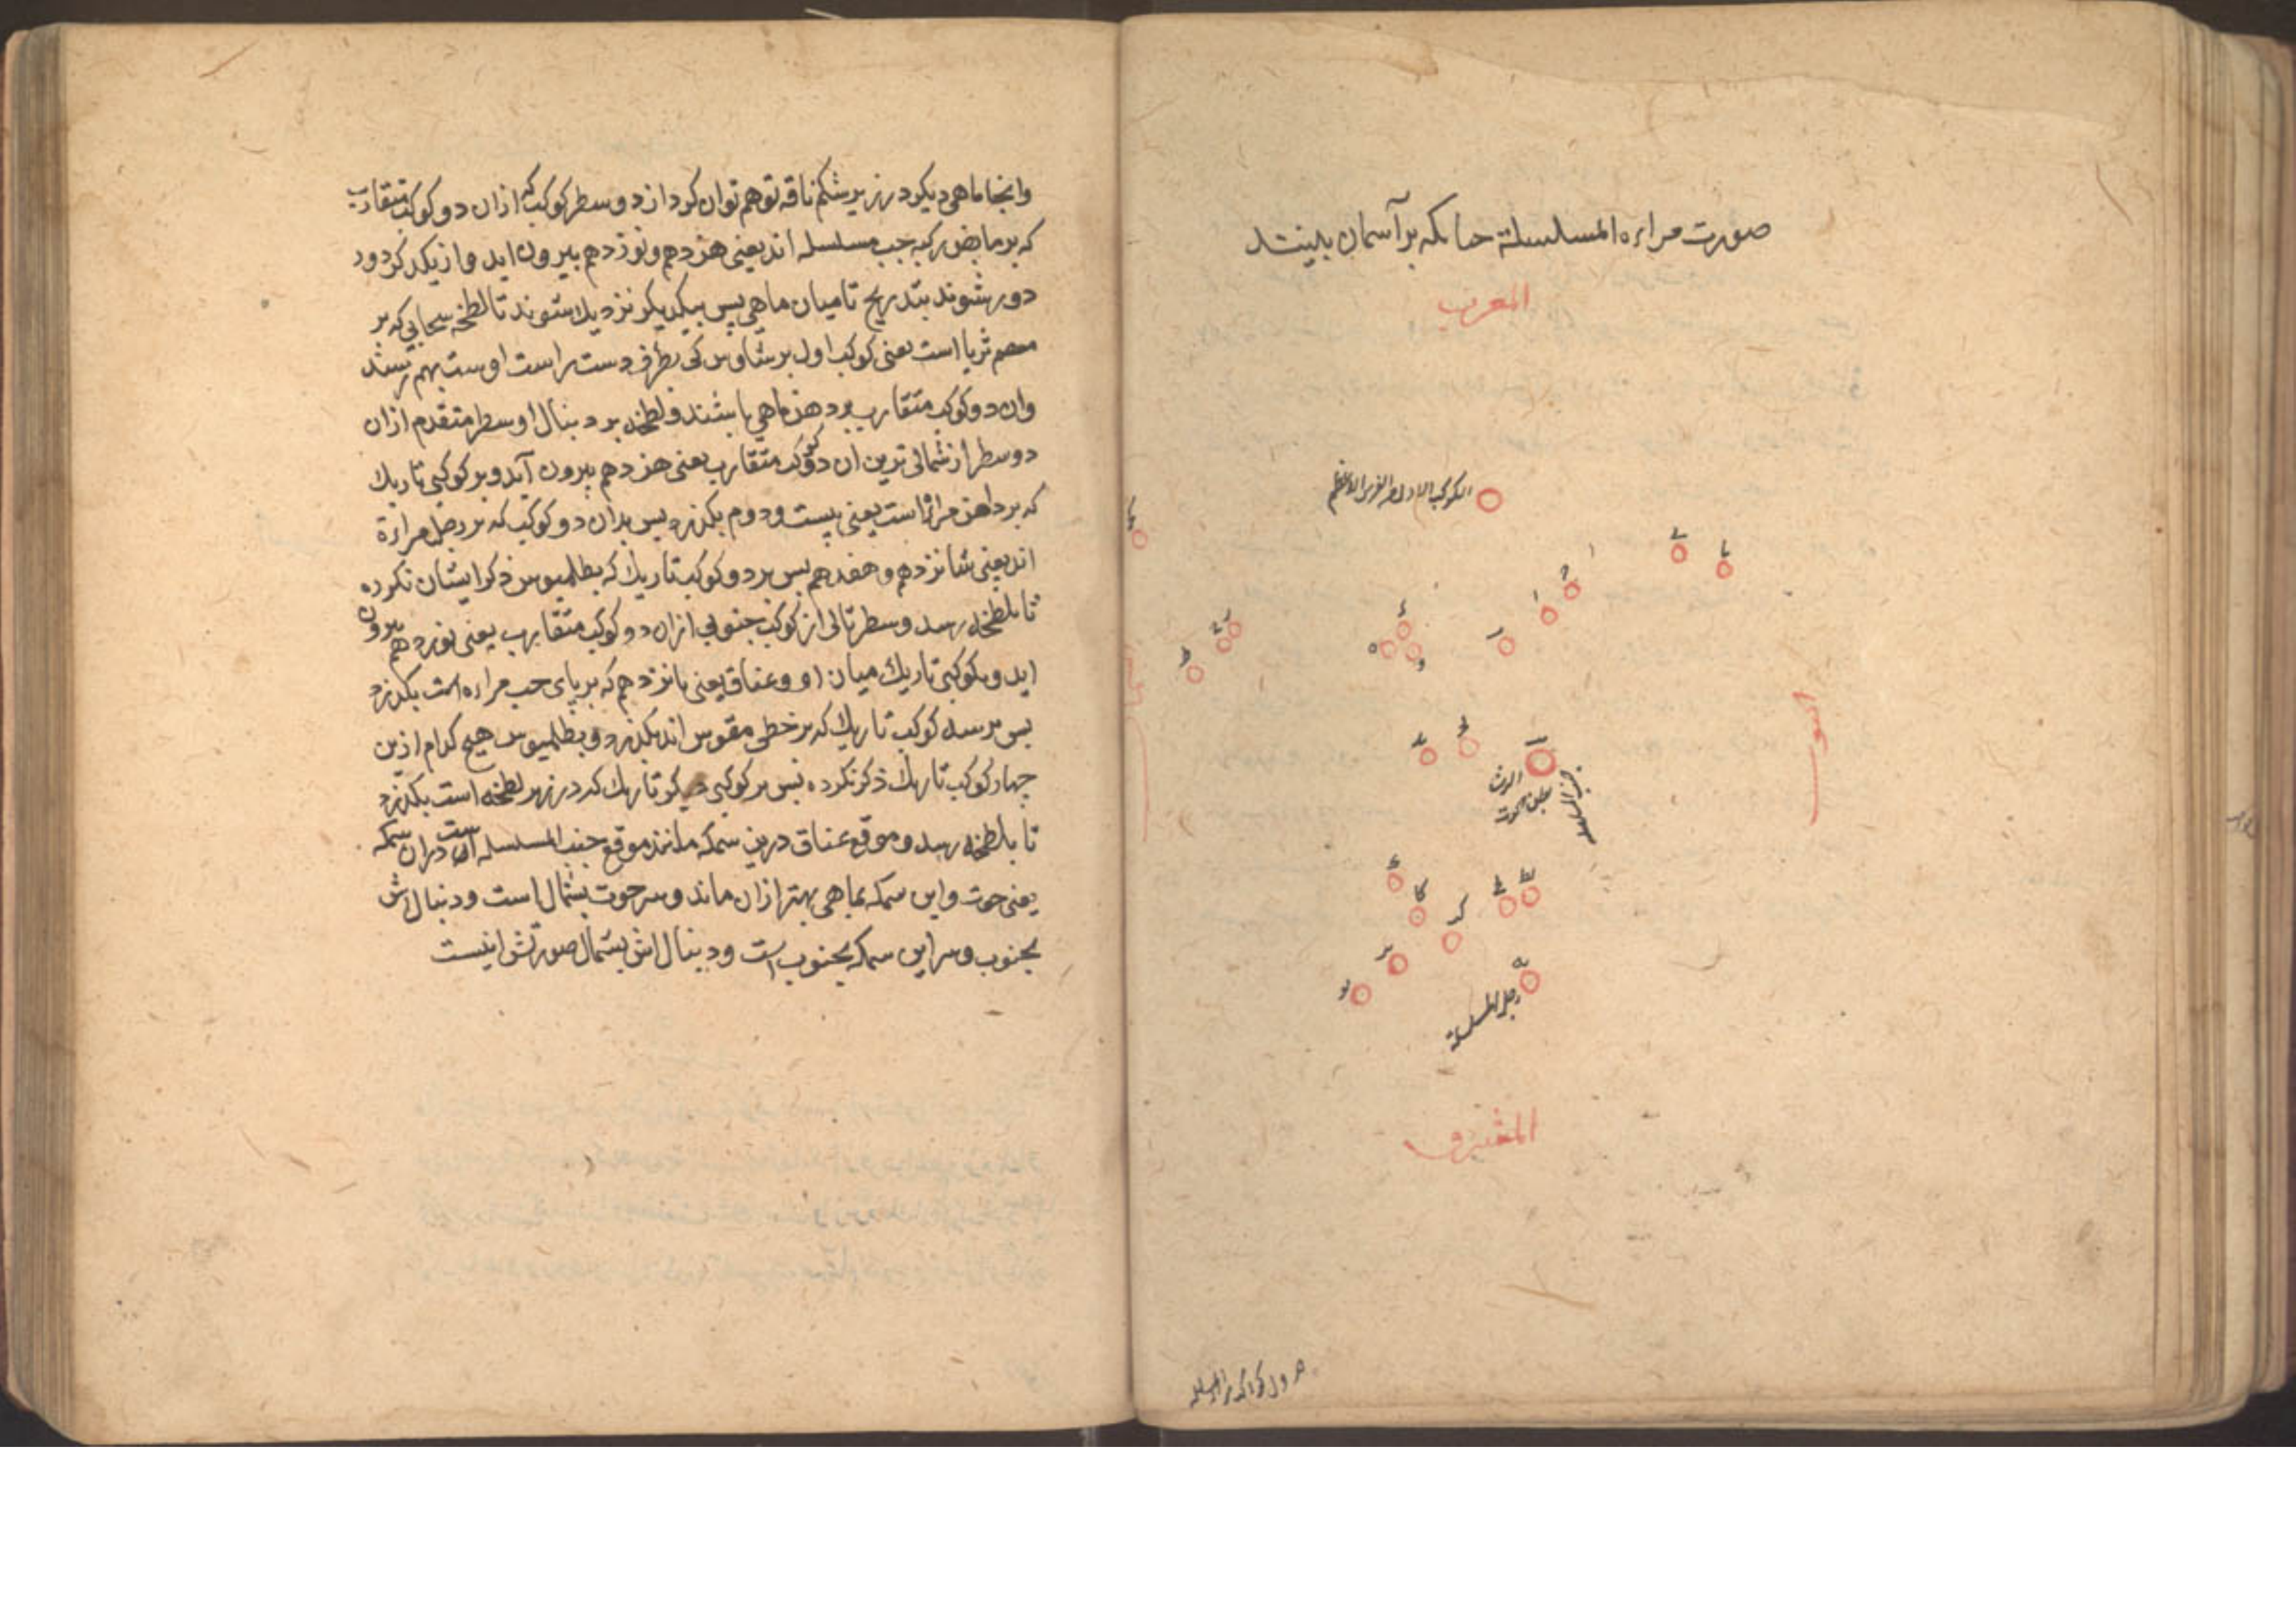 صورت مراه المسلسلة حنانكه بر آسمان بلینند
المغرب
الكوكب الاول من الفرس الاعظم
الجنوب
الرشا
بطن الحوت
جنب المسلسله
رجل المسلسلة
المشرق
جدول كواكب مراه المسلسله
وانجا ماهی دیکر در زیر شکم ناقه توهم توان کرد از دو سطر کوکب که ازان دو کوکب متقارب
که بر مابض رکبه جب مسلسله اند یعنی هزدهم ونوزدهم بیرون اید واز یکدیکر دور
دور شوند بتدریج تا میان ماهی پس بیکدیکر نزدیك شوند تا لطخه سحابی که بر
معصم ثریا است یعنی کوکب اول برشاوس کی بطرف دست راست اوست بهم رسند
وان دو کوکب متقارب بر دهن ماهی باشند ولطخه بر دنبال او سطر متقدم ازان
دو سطر از شمالی ترین ان دو کوکب متقارب یعنی هزدهم بیرون آید وبر کوکبی تاریك
که بر دامن مراة است یعنی بیست ودوم بکذرد پس بدان دو کوکب که بر رجل مراة
اند یعنی شانزدهم وهفدهم پس بر دو کوکب تاریك که بطلمیوس ذکر ایشان نکرده
تا بلطخه رسد وسطر تالی از کوکب جنوبی ازان دو کوکب متقارب یعنی نوزدهم بیرون
اید وبکوکبی تاریك میان او وعناق یعنی پانزدهم که بر پای جب مراه است بکذرد
پس بر سه کوکب تاریك که بر خطی مقوس اند بکذرد وبطلمیوس هیج کدام ازین
چهار کوکب تاریك ذکر نکرده پس بر کوکبی دیکر تاریك که در زیر لطخه است بکذرد
تا بلطخه رسد وموقع عناق درین سمکه مانند موقع جنب المسلسله است دران سمکه
یعنی حوت واین سمکه بماهی بهتر ازان ماند وسر حوت بشمال است ودنبال اش
بجنوب وسر این سمکه بجنوب است ودنبال اش بشمال صورتش اینست